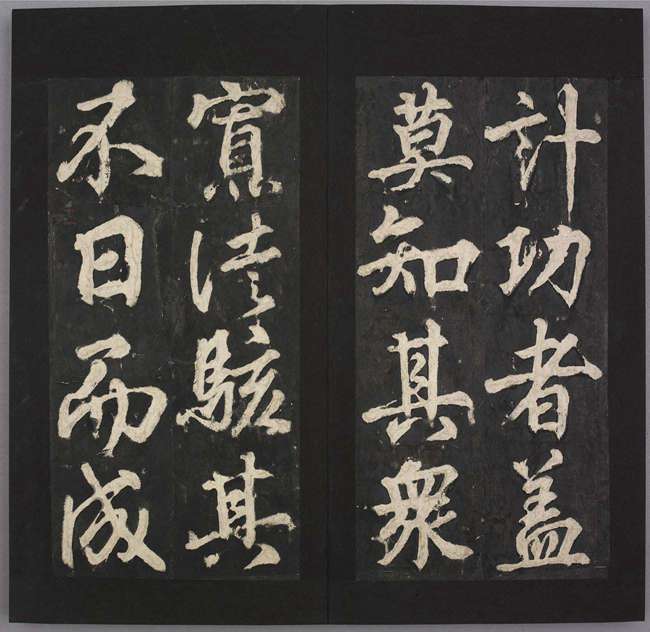 計功者盖
莫知其衆
實徒駭其
不日而成